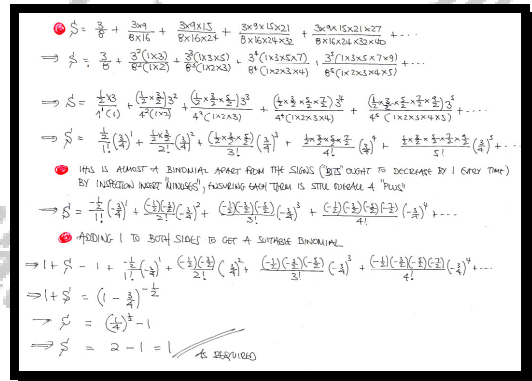 S = 3/8 + 3×9/8×16 + 3×9×15/8×16×24 + 3×9×15×21/8×16×24×32 + 3×9×15×21×27/8×16×24×32×40 + ....
⇒ S = 3/8 + 3²(1×3)/8²(1×2) + 3³(1×3×5)/8³(1×2×3) + 3⁴(1×3×5×7)/8⁴(1×2×3×4) + 3⁵(1×3×5×7×9)/8⁵(1×2×3×4×5) + ....
⇒ S = ½×3/4¹(1) + (½×3/2)3²/4²(1×2) + (½×3/2×5/2)3³/4³(1×2×3) + (½×3/2×5/2×7/2)3⁴/4⁴(1×2×3×4) + (½×3/2×5/2×7/2×9/2)3⁵/4⁵(1×2×3×4×5) + .....
⇒ S = ½/1!(3/4)¹ + ½×3/2/2!(3/4)² + (½×3/2×5/2)/3!(3/4)³ + ½×3/2×5/2×7/2/4!(3/4)⁴ + ½×3/2×5/2×7/2×9/2/5!(3/4)⁵ + ..
THIS IS ALMOST A BINOMIAL APART FROM THE SIGNS ("BITS" OUGHT TO DECREASE BY 1 EVERY TIME)
BY INSPECTION INSERT MINUSES", ENSURING EACH TERM IS STILL OVERALL A "PLUS"
⇒ S = -½/1!(-3/4)¹ + (-½)(-3/2)/2!(-3/4)² + (-½)(-3/2)(-5/2)/3!(-3/4)³ + (-½)(-3/2)(-5/2)(-7/2)/4!(-3/4)⁴ + ....
ADDING 1 TO BOTH SIDES TO GET A SUITABLE BINOMIAL
⇒ 1 + S = 1 + -½/1!(-3/4)¹ + (-½)(-3/2)/2!(-3/4)² + (-½)(-3/2)(-5/2)/3!(-3/4)³ + (-½)(-3/2)(-5/2)(-7/2)/4!(-3/4)⁴ + ....
⇒ 1 + S = (1 - 3/4)^-½
⇒ S = (1/4)^-½ - 1
⇒ S = 2 - 1 = 1 AS REQUIRED